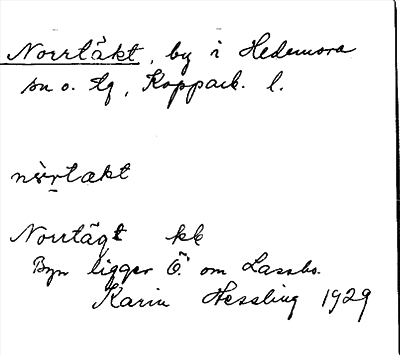 Norrtäkt, by i Hedemora
sn o. tg, Kopparb. l.
nòrtækt
Norrtägt kb
Byn ligger Ö. om Lassbo.
Karin Hessling 1929